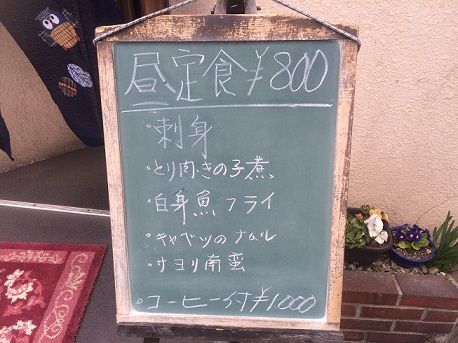 昼定食¥800
・刺身
・とり肉きの子煮
・白身魚フライ
・キャベツのナムル
・サヨリ南蛮
・コーヒー付¥1000